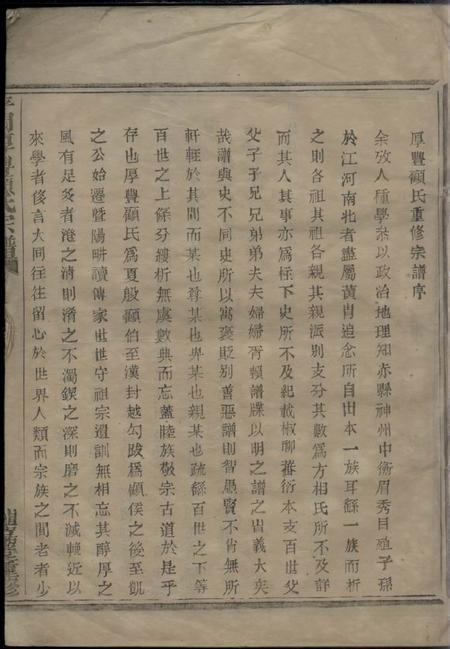 厚豐顧氏重修宗譜序
余攷人種學叅以政治地理知赤縣神州中衛眉秀目殖子孫
於江河南北者盡屬黃胄追念所自出本一族耳繇一族而析
之則各祖其祖各親其親派別支分其數爲方相氏所不及詳
而其人其事亦爲稗下史所不及紀載椒聊蕃衍本支百世父
父子子兄兄弟弟夫夫婦婦胥賴譜牒以明之譜之旹義大矣
哉譜與史不同史所以寓褒貶别善惡譜則智愚賢不肖無所
軒輊於其間而某也尊某也卑某也親某也疏繇百世之下等
百世之上條分縷析無虞數典而忘蓋睦族敬宗古道於是乎
存也厚豐顧氏爲夏殷顧伯至漢封越勾踐爲顧侯之後至凱
之公始遷暨陽畊讀傳家世世守祖宗遺訓無相忘其醇厚之
風有足多者澄之清則淆之不濁鍥之深則磨之不滅輓近以
來學者侈言大同往往留心於世界人類而宗族之間老者少
顧氏宗譜